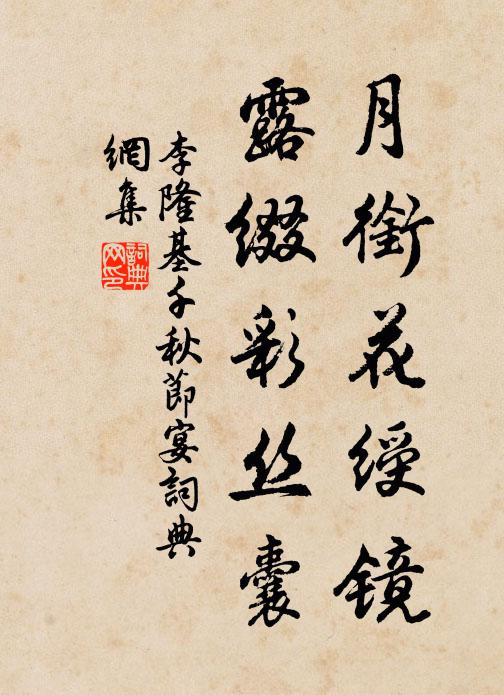 月銜花綬镜
露缀彩丝囊
李隆基千秋節宴詞典
網集
詞典
网印